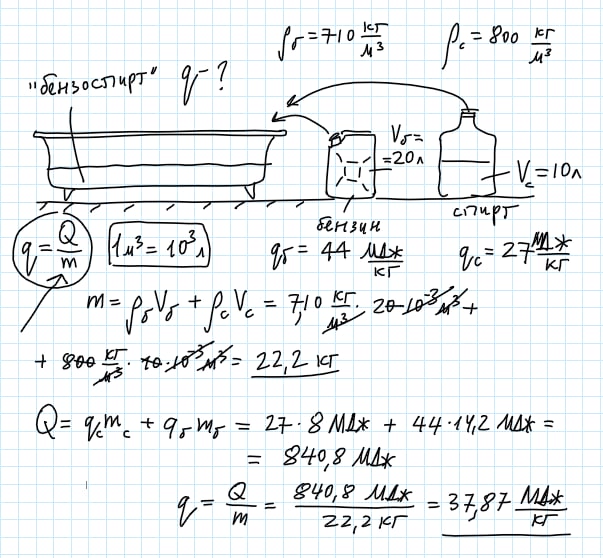 ρб = 710 кг/м³ ρс = 800 кг/м³
"бензоспирт" q - ?
Vб = = 20л
Vс = 10л
бензин
спирт
q = Q/m 1м³ = 10³л qб = 44 МДж/кг qс = 27 МДж/кг
m = ρбVб + ρсVс = 7,10 кг/м³ · 20·10⁻³ м³ +
+ 800 кг/м³ · 10·10⁻³ м³ = 22,2 кг
Q = qсmс + qбmб = 27·8 МДж + 44·14,2 МДж =
= 840,8 МДж
q = Q/m = 840,8 МДж/22,2 кг = 37,87 МДж/кг